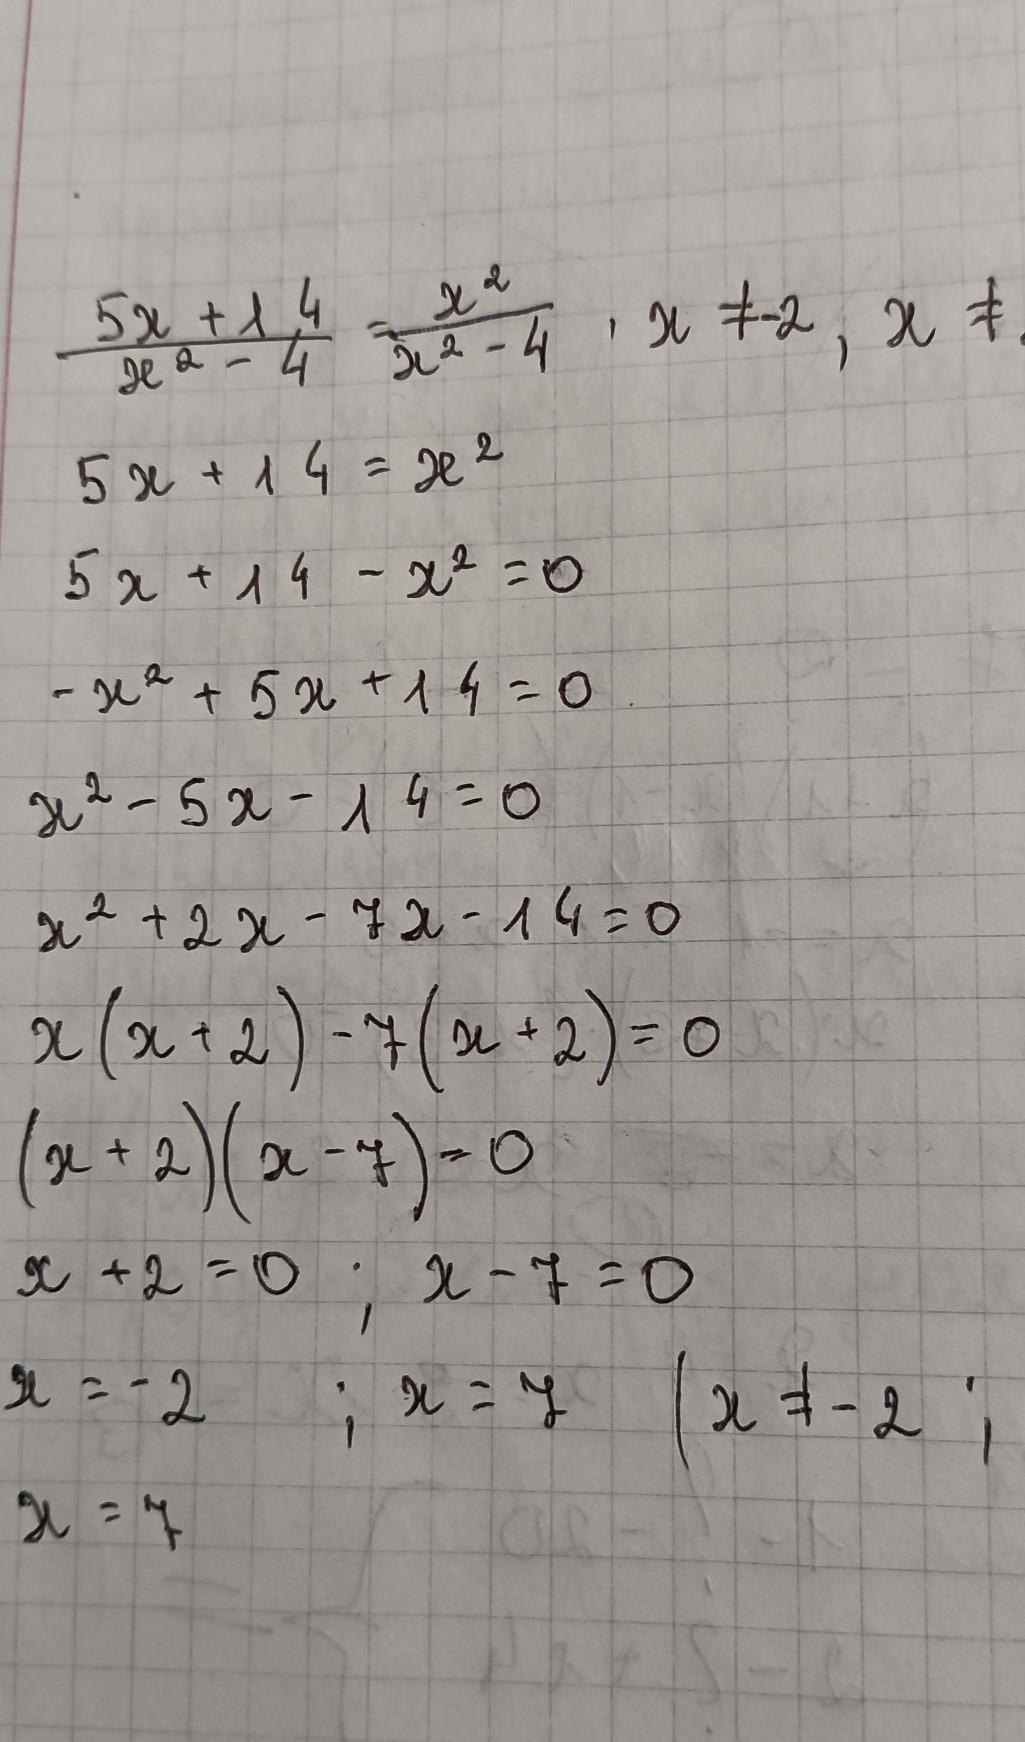 (5x + 14)/(x² - 4) = x²/(x² - 4), x ≠ -2, x ≠
5x + 14 = x²
5x + 14 - x² = 0
-x² + 5x + 14 = 0
x² - 5x - 14 = 0
x² + 2x - 7x - 14 = 0
x(x + 2) - 7(x + 2) = 0
(x + 2)(x - 7) = 0
x + 2 = 0 ; x - 7 = 0
x = -2 ; x = 7 (x ≠ -2 ;
x = 7